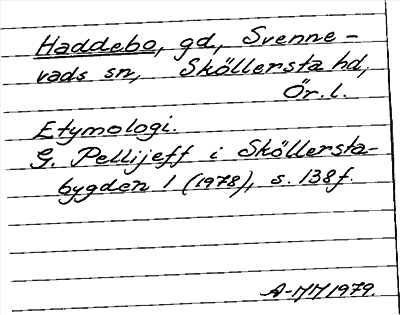 Haddebo, gd, Svenne-
vads sn, Sköllersta hd,
Ör. l.
Etymologi.
G. Pellijeff i Sköllersta-
bygden 1 (1978), s. 138f.
1979.